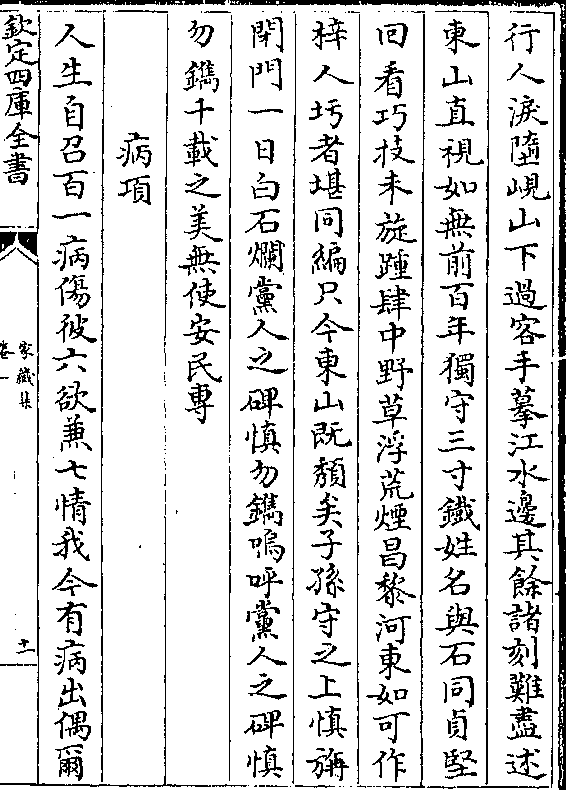 行人淚隨峴山下過客手摹江水邊其餘諸刻難盡述
東山直視如無前百年獨守三寸鐵姓名與石同貞堅
回看巧技未旋踵肆中野草浮荒煙昌黎河東如可作
梓人圬者堪同編只今東山既頹矣子孫守之上慎旃
閉門一日白石爛黨人之碑慎勿鐫嗚呼黨人之碑慎
勿鐫千載之美無使安民專
病項
人生自召百一病傷彼六欲兼七情我今有病出偶爾
欽定四庫全書
家藏集
卷一
十一